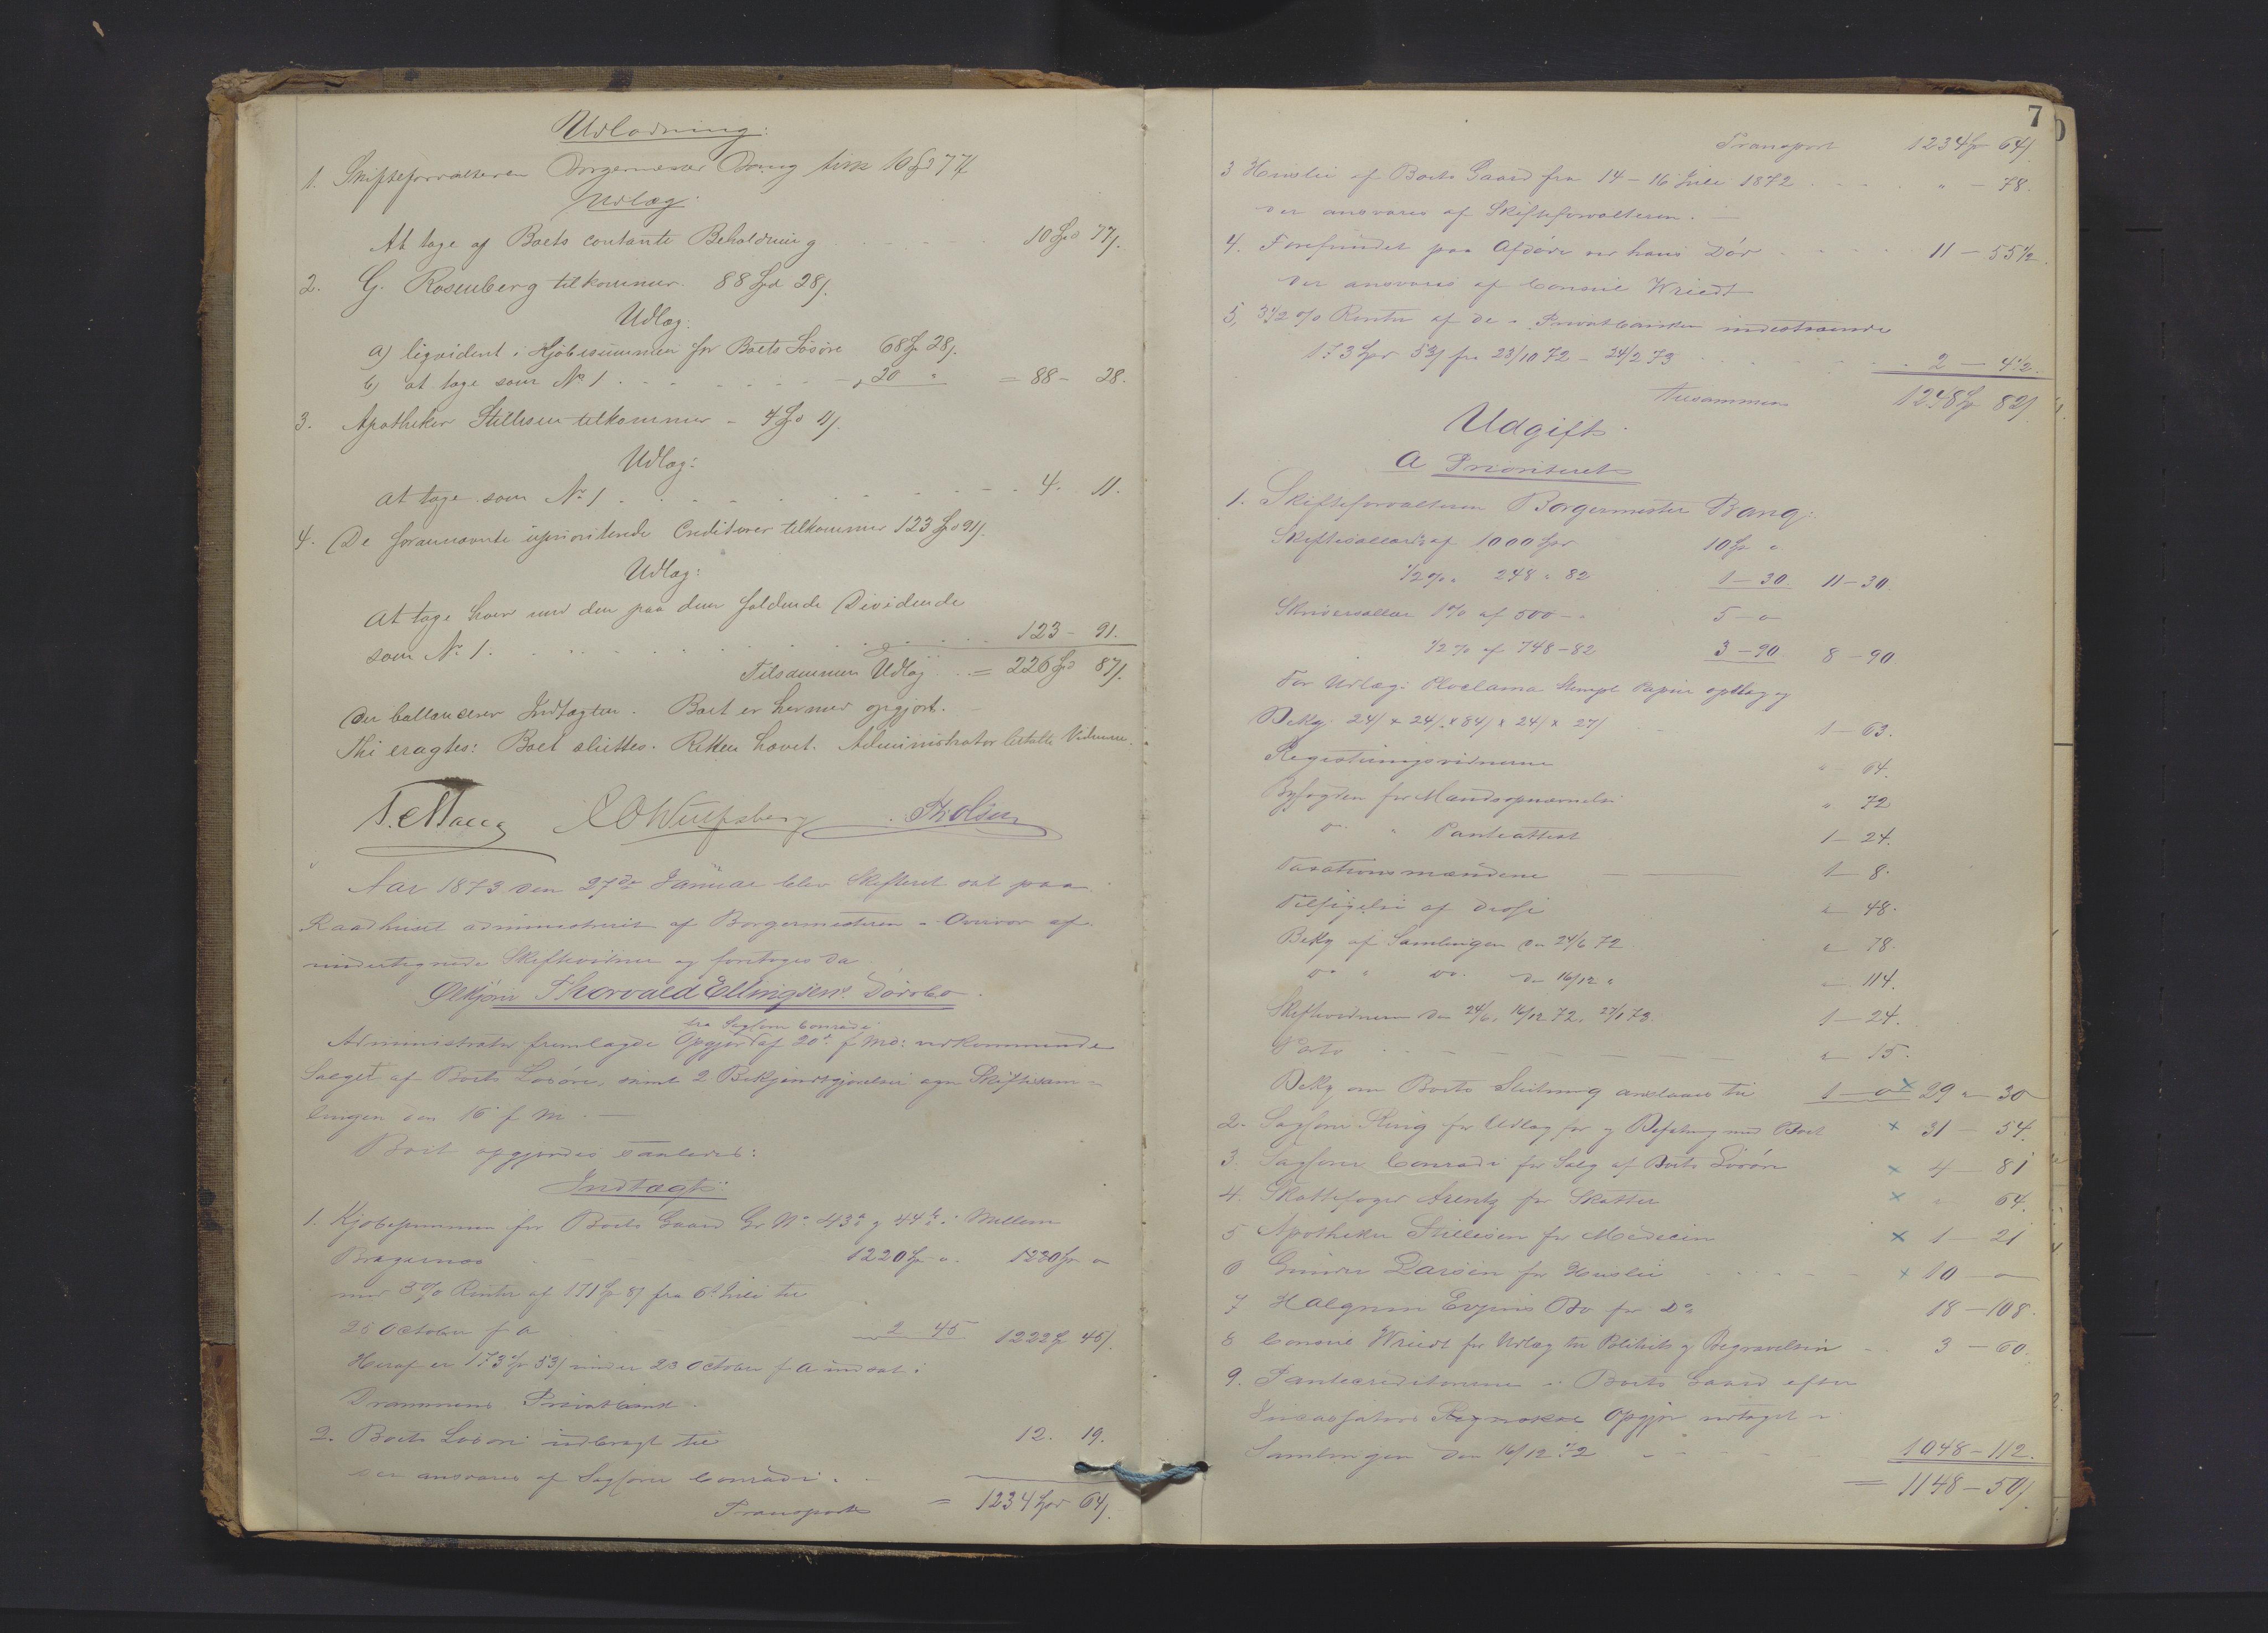 Udlodning:
1. Skifteforvalteren Borgermester Bang tilk 10 Spd 77 ſ
Udlæg:
At tage af Boets contante Beholdning 10 Spd 77 ſ.
2. G. Rosenberg tilkommer. 88 Spd 28 ſ.
Udlæg:
a) liqvideret i Kjøbesummen for Boets Løsøre 68 Sp 28 ſ.
b) at tage som No 1 . 20 " = 88 - 28.
3. Apotheker Stillesen tilkommer - 4 Spd 11 ſ.
Udlæg:
at tage som No 1 . 4. 11.
4. De forannævnte uprioriterede Creditorer tilkommer 123 Spd 91 ſ.
Udlæg:
At tage hver med den paa dem faldende Dividende
som No 1. 123 - 91.
Tilsammen Udlæg = 226 Spd 87 ſ.
der ballancerer Indtægten. Boet er hermed opgjort.
Thi eragtes: Boet sluttes. Retten hævet. Administrator betalte Vidnerne.
C O Wulfsberg Th Olsen
Aar 1873 den 27de Januar blev Skifteret sat paa
Raadhuset administreret af Borgermesteren - Overvær af
undertegnede Skiftevidner og foretoges da
Thorvald Ellingsens Dødsbo.
fra Sagfører Conradi
Administrator fremlagde Opgjør af 20de f Md: vedkommende
Salget af Boets Løsøre, samt 2 Bekjendtgjørelser ang Skiftesam-
lingen den 16 f M. -
Boet opgjordes saaledes:
Indtægt
1. Kjøbesummen for Boets Gaard Gr No 43a og 44b i Mellem
Bragernæs 1220 Sp - " 1220 Sp "
med 5% Renter af 171 Sp 8 ſ fra 6 Juli til
26 October f A 2 45 1222 Sp 45 ſ.
Heraf er 173 Sp 53 ſ under 23 October f A indsat i
Drammens Privatbank.
2. Boets Løsøre indbragt til 12. 19.
der ansvares af Sagfører Conradi. -
Transport = 1234 Spd 64 ſ.
7
Transport 1234 Sp 64 ſ.
3 Huusleie af Boets Gaard fra 14 - 16 Juli 1872 " - 78.
der ansvares af Skifteforvalteren. -
4. Forefundet paa Afdøde ved hans Død 11 - 55 1/2.
der ansvares af Consul Wriedt
5, 3 1/2 % Renter af de i Privatbanken indestaaende
173 Spd 53 ſ fra 23/10 72 - 24/2 73 2 - 4 1/2.
tilsammen 1248 Sp 82 ſ
Udgift.
A Prioriteret
1. Skifteforvalteren Borgermester Bang:
Skiftesallær af 1000 Spd 10 Sp "
1/2 % " 248 " 82 1 - 30. 11 - 30
Skriversallær 1% af 500 - " 5 - "
1/2 % af 748 - 82 3 - 90 8 - 90
For Udlæg: Proclama Stempl Papir
Bekg. 24 ſ + 24 ſ + 84 ſ + 24 ſ + 27 ſ 1 - 63.
Registreringsvidnerne " 64.
Byfogden for Mandsopnævnelse " 72
do " Panteattest 1 - 24.
Taxationsmændene 1 - 8.
Tilsigelse af disse " 48.
Bekg af Samlingen den 24/6 72 " - 78.
do " do. den 16/12 " " 114.
Skiftevidnerne den 24/6, 16/12 72, 27/1 73 1 - 24.
Porto " 15.
Bekg om Boets Slutning anslaaes til 1 - 0 x 29 " - 30
2. Sagfører Ring for Udlæg for og Befatning med Boet x 31 - 54.
3. Sagfører Conradi for Salg af Boets Løsøre x 4 - 81
4. Skattefoged Arentz for Skatter x " 64.
5 Apotheker Stillesen for Medicin x 1 - 21
6 Gunder Larsen for Huusleie x 10 - "
7 Halgrim Evjens Bo for Do 18 - 108.
8 Consul Wriedt for Udlæg til Politiets og Begravelsen 3 - 60.
9. Pantecreditorerne i Boets Gaard efter
Incassators Opgjør vedtaget i
Samlingen den 16/12 72 1048 - 112.
= 1148 - 50 ſ.